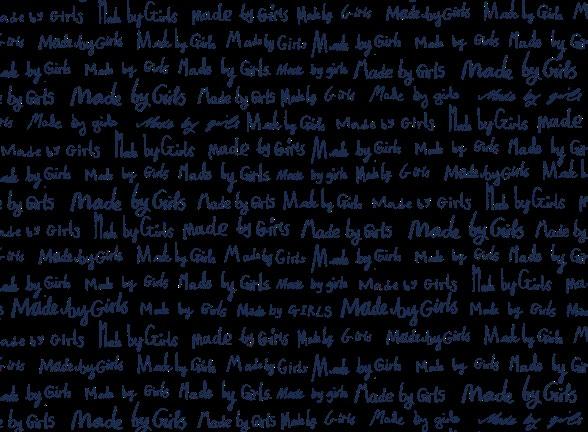 made by Girls Made by Girls made by Girls Made by Girls Made by Girls Made by Girls
Girls Made by Girls Made by Girls Made by Girls Made by Girls Made by Girls Made by
Made by Girls Made by Girls Made by Girls Made by girls Made by Girls Made by Girls
by Girls Made by Girls Made by Girls Made by Girls Made by girls Made by girls
Girls Made by girls Made by girls Made by Girls Made by Girls Made by Girls made
Made by Girls Made by Girls made by Girls Made by Girls Made by Girls Made by Girls
Made by Girls Made by Girls Made by Girls Made by girls Made by Girls Made by Girls Made
by Girls Made by Girls Made by Girls Made by Girls Made by Girls Made by Girls
made by Girls Made by Girls made by Girls Made by Girls Made by Girls Made by
Girls Made by Girls Made by Girls Made by Girls Made by Girls Made by Girls Made by
Made by Girls Made by Girls Made by Girls Made by girls Made by Girls Made by Girls made
Made by Girls Made by Girls Made by GIRLS Made by Girls Made by Girls Made
made by Girls Made by Girls made by Girls Made by Girls Made by Girls Made by Girls
Girls Made by Girls Made by Girls Made by Girls Made by Girls Made by Girls Made by
Made by Girls Made by Girls Made by Girls Made by girls Made by Girls Made by Girls
by Girls Made by Girls Made by Girls Made by Girls Made by girls Made by girls